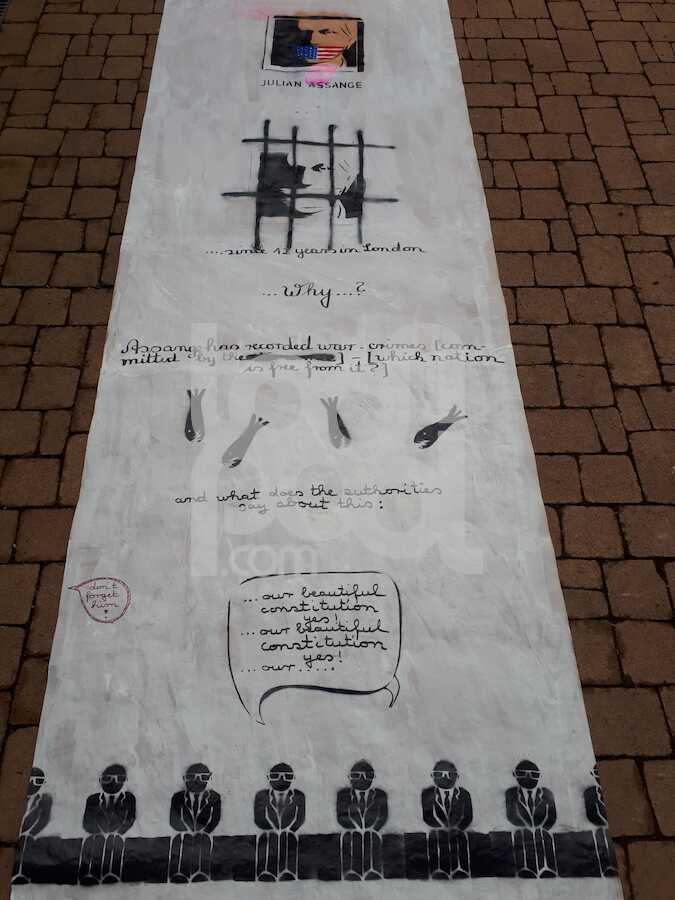 JULIAN ASSANGE
....since 12 years in London
...Why...?
Assange has recorded war-crimes [com-
mitted by the ] - [which nation
is free from it?]
and what does the authorities
say about this:
don't
forget
him
!
... our beautiful
constitution
yes!
... our beautiful
constitution
yes!
... our.....
.com